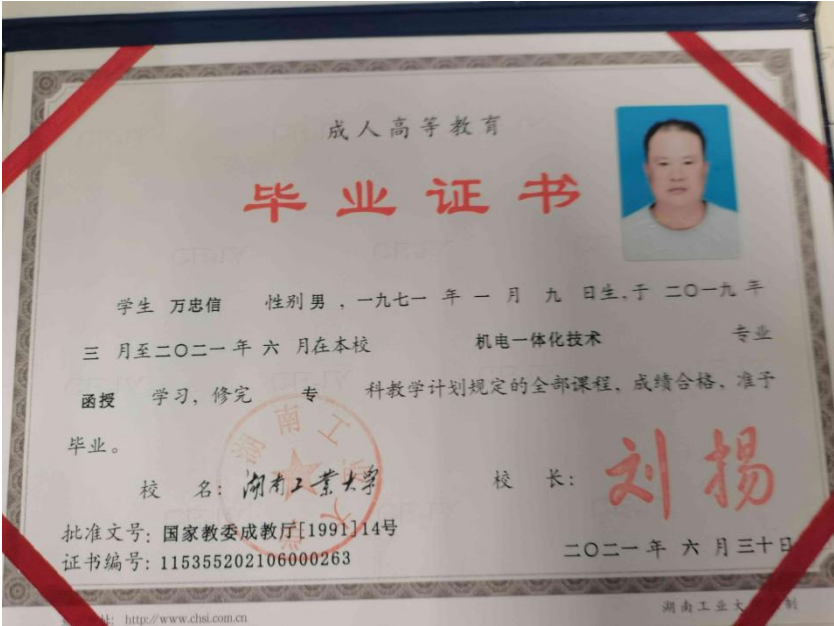 成人高等教育
毕业证书
学生 万忠信 性别 男 ，一九七一 年 一 月 九 日生，于 二〇一九 年
三 月至二〇二一 年 六 月在本校 机电一体化技术 专业
函授 学习，修完 专 科教学计划规定的全部课程，成绩合格，准予
毕业。
校 名：湖南工业大学 校 长：刘扬
批准文号：国家教委成教厅[1991]14号
证书编号：115355202106000263
二〇二一 年 六 月 三十日
http://www.chsi.com.cn
湖南工业大 制